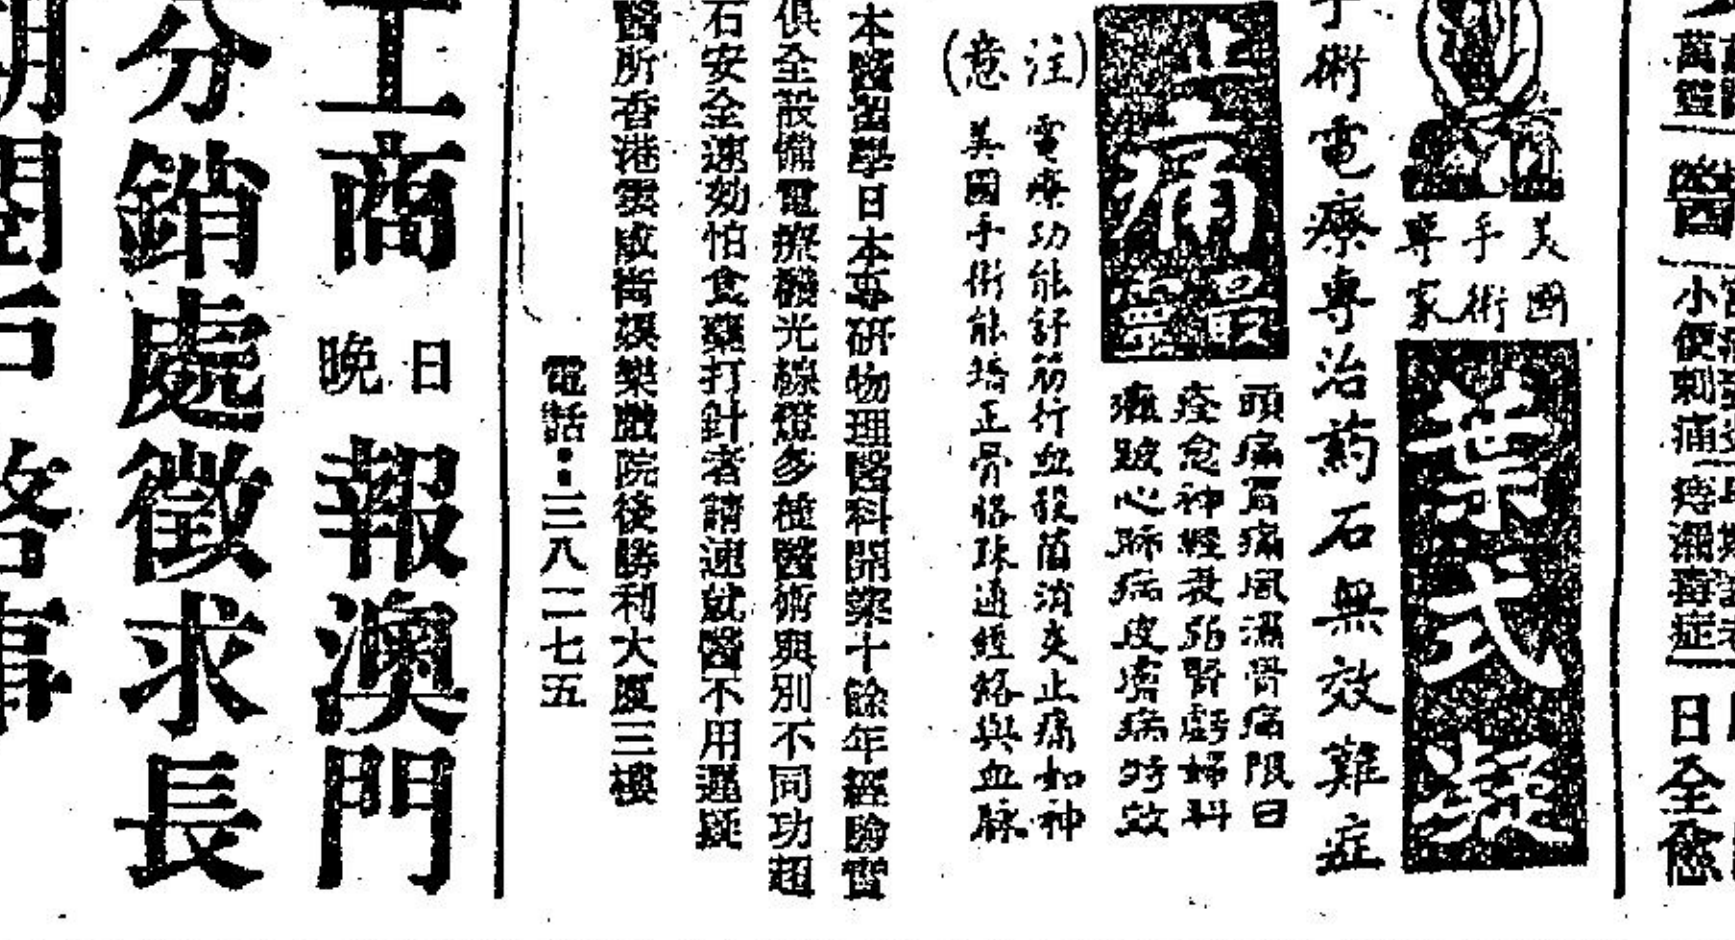 萬靈
小便刺痛
日全愈
美國
手術
專家
葉式凝
手術電療專治葯石無效難症
止痛
最靈
頭痛胃痛風濕骨痛限日
痊愈神經衰弱腎虧婦科
癱跛心肺病皮膚病特效
(注意)
電療功能舒筋行血殺菌消炎止痛如神
美國手術能培正骨骼疎通經絡與血脉
本醫留學日本專研物理醫科開業十餘年經驗豐
俱全設備電療機光線燈多種醫術與別不同功超
石安全速効怕食藥打針者請速就醫不用遲疑
醫所香港雲咸街娛樂戲院後勝利大廈三樓
電話:三八二七五
工商日晚報澳門
分銷處徵求長
期閱戶啓事